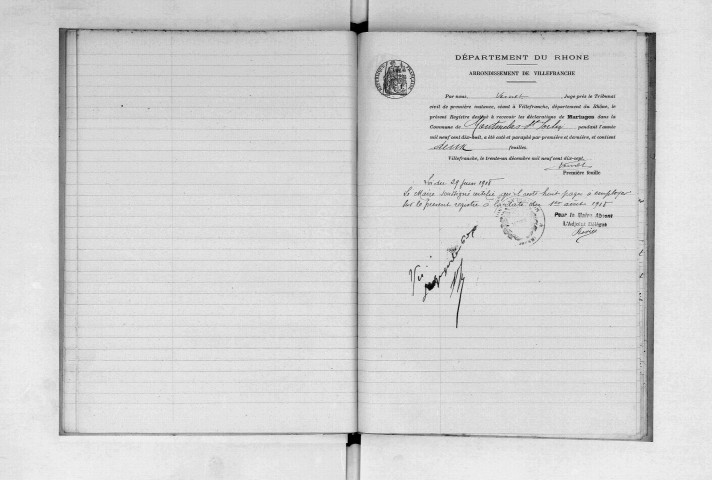 DÉPARTEMENT DU RHONE
ARRONDISSEMENT DE VILLEFRANCHE
Par nous, Juge près le Tribunal
civil de première instance, séant à Villefranche, département du Rhône, le
présent Registre destiné à recevoir les déclarations de Mariages dans la
Commune de Montmelas St Sorlin pendant l'année
mil neuf cent dix-huit, a été coté et paraphé par première et dernière, et contient
deux feuilles.
Villefranche, le trente-un décembre mil neuf cent dix-sept.
Première feuille
Loi du 29 juin 1918
Le Maire soussigné certifie qu'il reste huit pages à employer
sur le présent registre à la date du 1er août 1918
Pour le Maire Absent
L'Adjoint Délégué
RÉPUBLIQUE FRANÇAISE
Vu